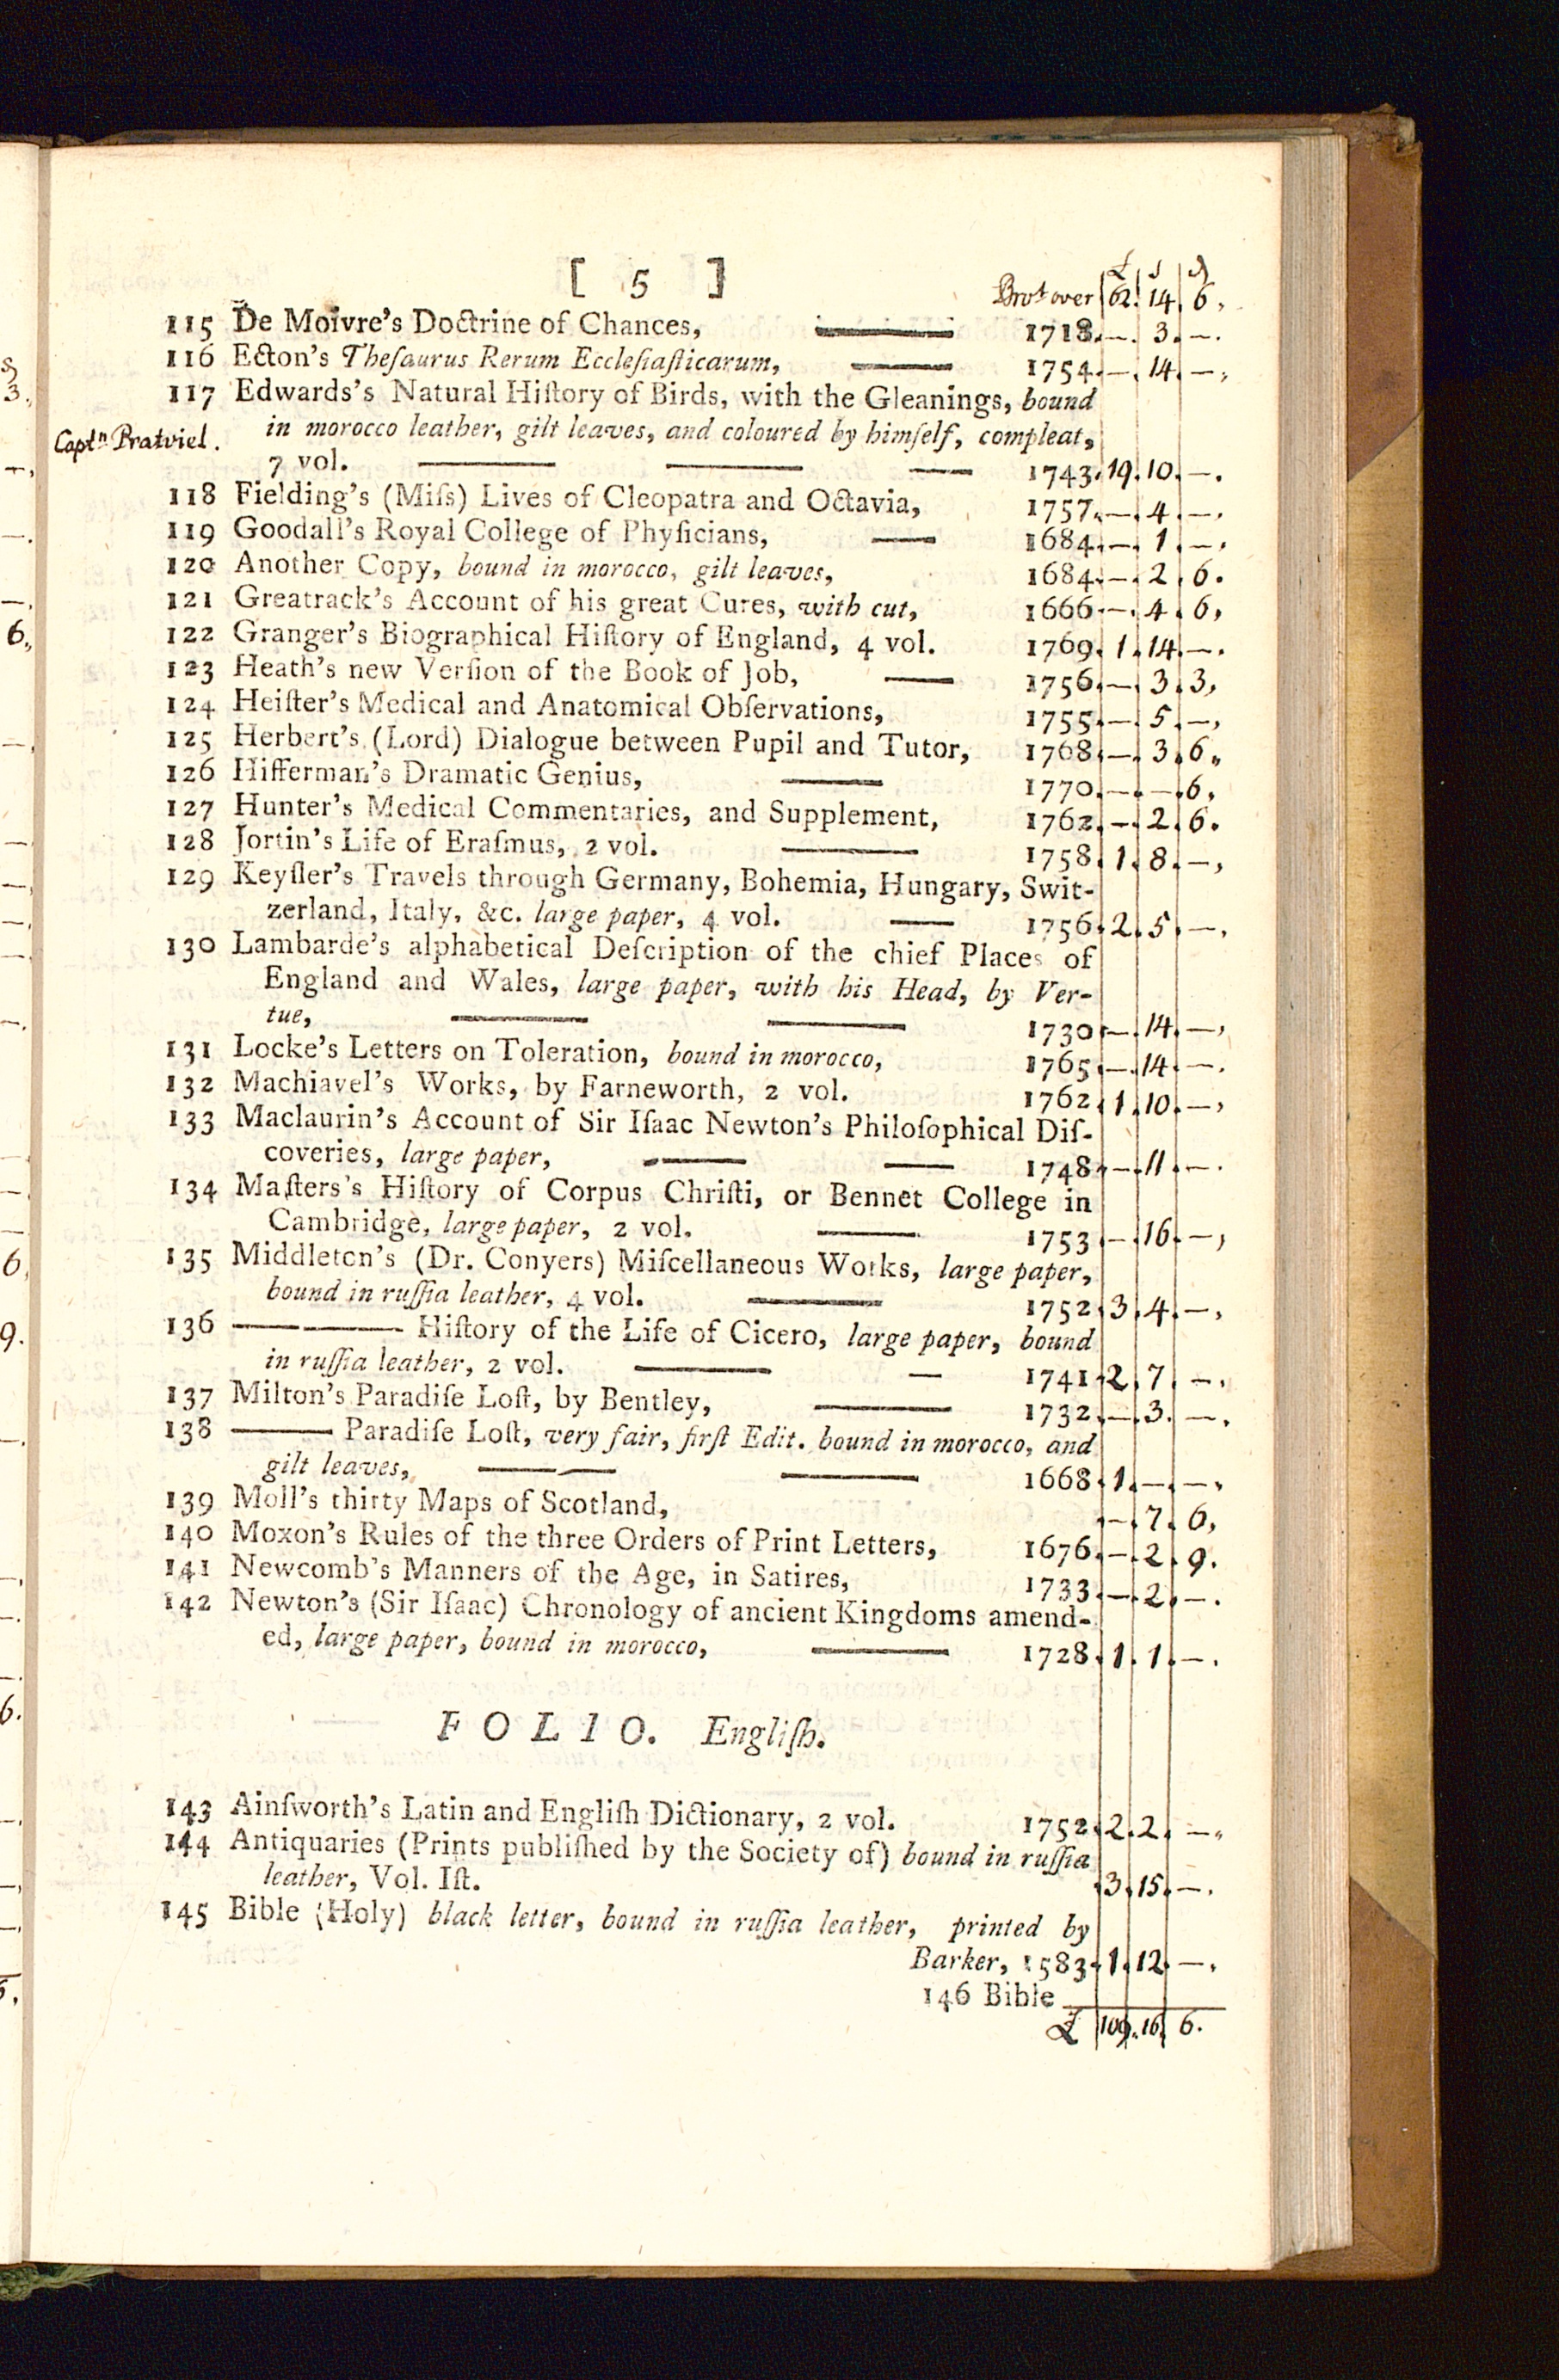 [ 5 ]
£ s d
Brot over 62. 14. 6.
115 De Moivre's Doctrine of Chances, 1718. —. 3. —.
116 Ecton's Theſaurus Rerum Eccleſiaſticarum, 1754. —. 14. —.
117 Edwards's Natural Hiſtory of Birds, with the Gleanings, bound
Captn Pratviel. in morocco leather, gilt leaves, and coloured by himſelf, compleat,
7 vol. 1743. 19. 10. —.
118 Fielding's (Miſs) Lives of Cleopatra and Octavia, 1757. —. 4. —.
119 Goodall's Royal College of Phyſicians, 1684. —. 1. —.
120 Another Copy, bound in morocco, gilt leaves, 1684. —. 2. 6.
121 Greatrack's Account of his great Cures, with cut, 1666 —. 4. 6.
122 Granger's Biographical Hiſtory of England, 4 vol. 1769. 1. 14. —.
123 Heath's new Verſion of the Book of Job, 1756. —. 3. 3.
124 Heiſter's Medical and Anatomical Obſervations, 1755. —. 5. —.
125 Herbert's (Lord) Dialogue between Pupil and Tutor, 1768. —. 3. 6.
126 Hifferman's Dramatic Genius, 1770. —. —. 6.
127 Hunter's Medical Commentaries, and Supplement, 1762. —. 2. 6.
128 Jortin's Life of Eraſmus, 2 vol. 1758. 1. 8. —.
129 Keyſler's Travels through Germany, Bohemia, Hungary, Swit-
zerland, Italy, &c. large paper, 4 vol. 1756. 2. 5. —.
130 Lambarde's alphabetical Deſcription of the chief Places of
England and Wales, large paper, with his Head, by Ver-
tue, 1730. —. 14. —.
131 Locke's Letters on Toleration, bound in morocco, 1765. —. 14. —.
132 Machiavel's Works, by Farneworth, 2 vol. 1762. 1. 10. —.
133 Maclaurin's Account of Sir Iſaac Newton's Philoſophical Diſ-
coveries, large paper, 1748. —. 11. —.
134 Maſters's Hiſtory of Corpus Chriſti, or Bennet College in
Cambridge, large paper, 2 vol. 1753. —. 16. —.
135 Middleton's (Dr. Conyers) Miſcellaneous Works, large paper,
bound in ruſſia leather, 4 vol. 1752. 3. 4. —.
136 —— —— Hiſtory of the Life of Cicero, large paper, bound
in ruſſia leather, 2 vol. 1741. 2. 7. —.
137 Milton's Paradiſe Loſt, by Bentley, 1732. —. 3. —.
138 —— Paradiſe Loſt, very fair, firſt Edit. bound in morocco, and
gilt leaves, 1668. 1. —. —.
139 Moll's thirty Maps of Scotland, —. 7. 6.
140 Moxon's Rules of the three Orders of Print Letters, 1676. —. 2. 9.
141 Newcomb's Manners of the Age, in Satires, 1733. —. 2. —.
142 Newton's (Sir Iſaac) Chronology of ancient Kingdoms amend-
ed, large paper, bound in morocco, 1728. 1. 1. —.
FOLIO. Engliſh.
143 Ainſworth's Latin and Engliſh Dictionary, 2 vol. 1752. 2. 2. —.
144 Antiquaries (Prints publiſhed by the Society of) bound in ruſſia
leather, Vol. Iſt. 3. 15. —.
145 Bible (Holy) black letter, bound in ruſſia leather, printed by
Barker, 1583. 1. 12. —.
146 Bible
£ 109. 16. 6.